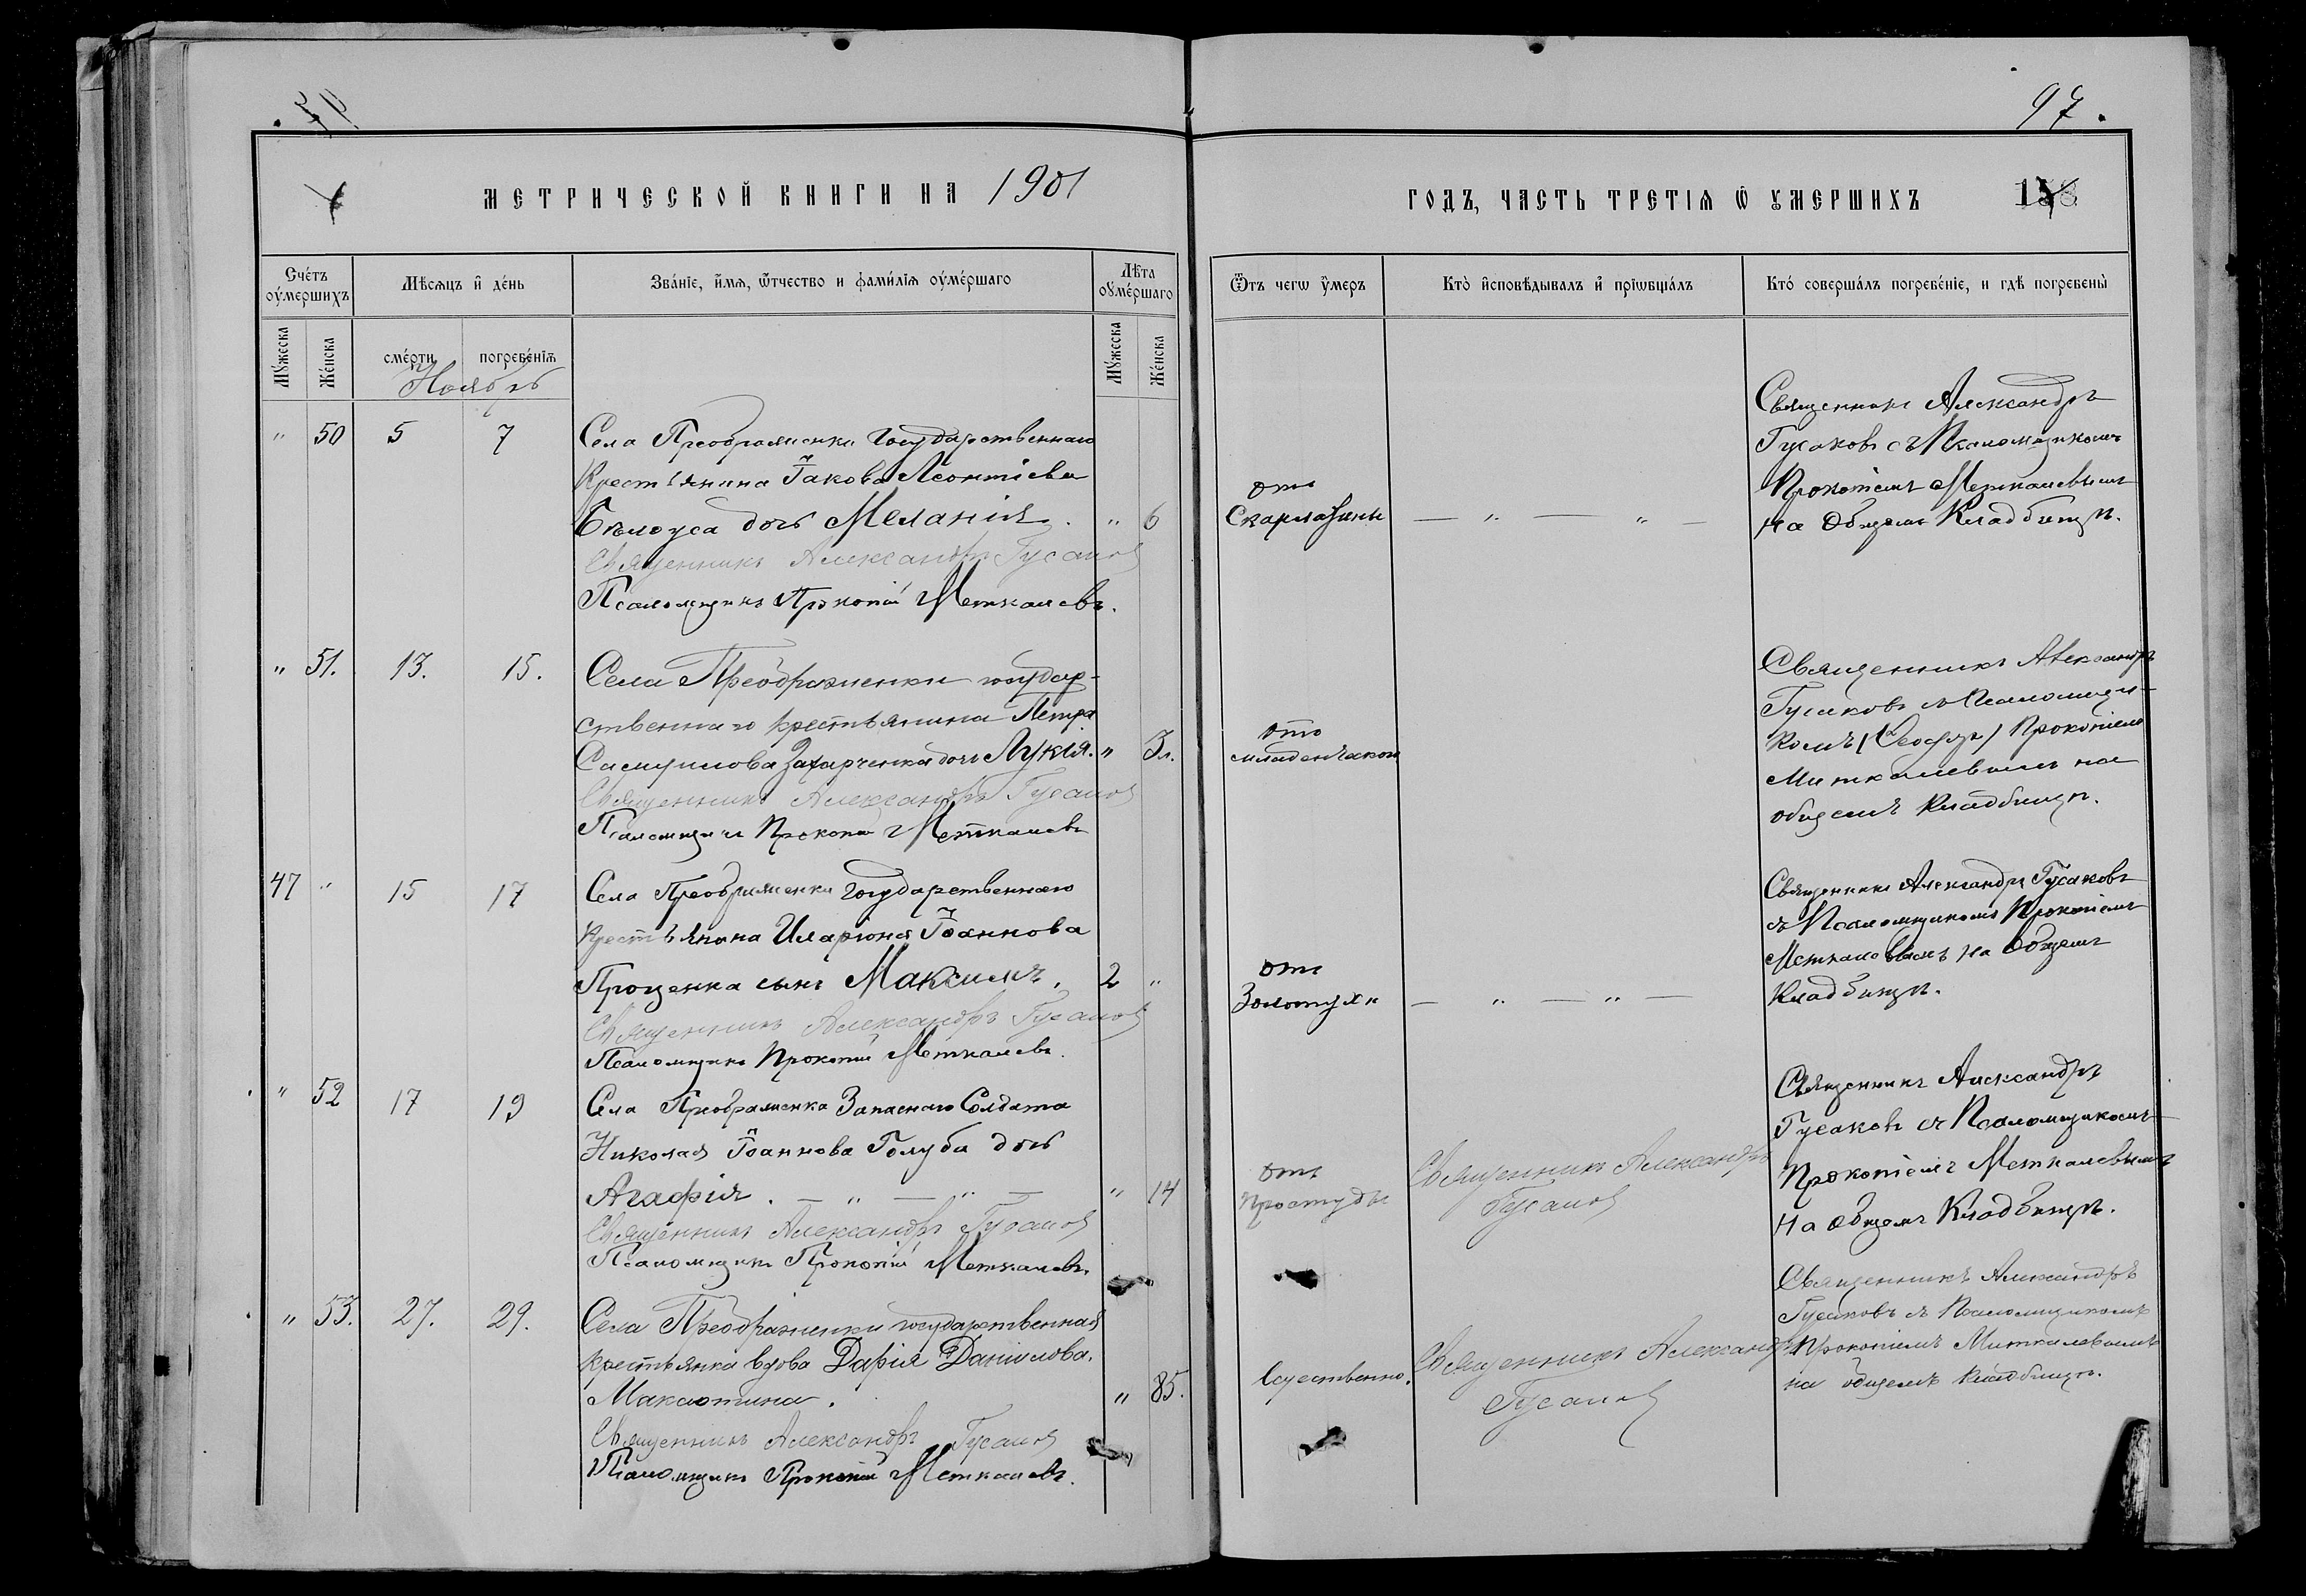 97.
МЕТРИЧЕСКОЙ КНИГИ НА 1901
ГОДЪ, ЧАСТЬ ТРЕТІѦ Ѿ ОУМЕРШИХЪ
Сче́тъ оу҆ме́ршихъ
Мѣсѧцъ и҆ де́нь
Зва́нїе, и҆́мѧ, ѻ҆́тчество и фами́лїѧ оу҆ме́ршагѡ
Лѣ́та оу҆ме́ршаго
Ѿ чегѡ̀ оу҆́меръ
Кто̀ и҆сповѣ́дывалъ и҆ прїѡбща́лъ
Кто́ соверша́лъ погребе́нїе, и гдѣ̀ погребены̀
Мꙋ́жеска
Же́нска
сме́рти
погребе́нїѧ
Мꙋ́жеска
Же́нска
Ноябрь
" 50 5 7
Села Преображенки Государственнаго
Крестьянина Іакова Леонтіева
Бѣлоуса дочь Меланія. " 6
Священникъ Александръ Гусаковъ
Псаломщикъ Прокопій Меткалевъ.
отъ
Скарлатины — " — " —
Священникъ Александръ
Гусаковъ съ Псаломщикомъ
Прокопіемъ Меткалевымъ
на Общемъ Кладбищѣ.
" 51. 13. 15.
Села Преображенки государ-
ственнаго крестьянина Петра
Захарченка дочь Лукія. " 3 л.
Священникъ Александръ Гусаковъ
Псаломщикъ Прокопій Меткалевъ
отъ
младенчакои
Священникъ Александръ
Гусаковъ съ Псаломщи-
комъ Прокопіемъ
Меткалевымъ на
общемъ кладбищѣ.
47 " 15 17
Села Преображенки Государственнаго
Крестьянина Иларіона Іоаннова
Проценка сынъ Максимъ. 2 "
Священникъ Александръ Гусаковъ
Псаломщикъ Прокопій Меткалевъ.
отъ
Золотухи — " — " —
Священникъ Александръ Гусаковъ
съ Псаломщикомъ Прокопіемъ
Меткалевымъ на Общемъ
Кладбищѣ.
" 52 17 19
Села Преображенка Запаснаго Солдата
Николая Іоаннова Голуба дочь
Агафія. — " — " — " 14
Священникъ Александръ Гусаковъ
Псаломщикъ Прокопій Меткалевъ.
отъ
простуды
Священникъ Александръ
Гусаковъ
Священникъ Александръ
Гусаковъ съ Псаломщикомъ
Прокопіемъ Меткалевымъ
на Общемъ Кладбищѣ.
" 53. 27. 29.
Села Преображенки государственная
крестьянка вдова Дарія Данилова.
Макаютина. " 85.
Священникъ Александръ Гусаковъ
Псаломщикъ Прокопій Меткалевъ.
Естественно.
Священникъ Александръ
Гусаковъ
Священникъ Александръ
Гусаковъ съ Псаломщикомъ
Прокопіемъ Меткалевымъ
на общемъ кладбищѣ.